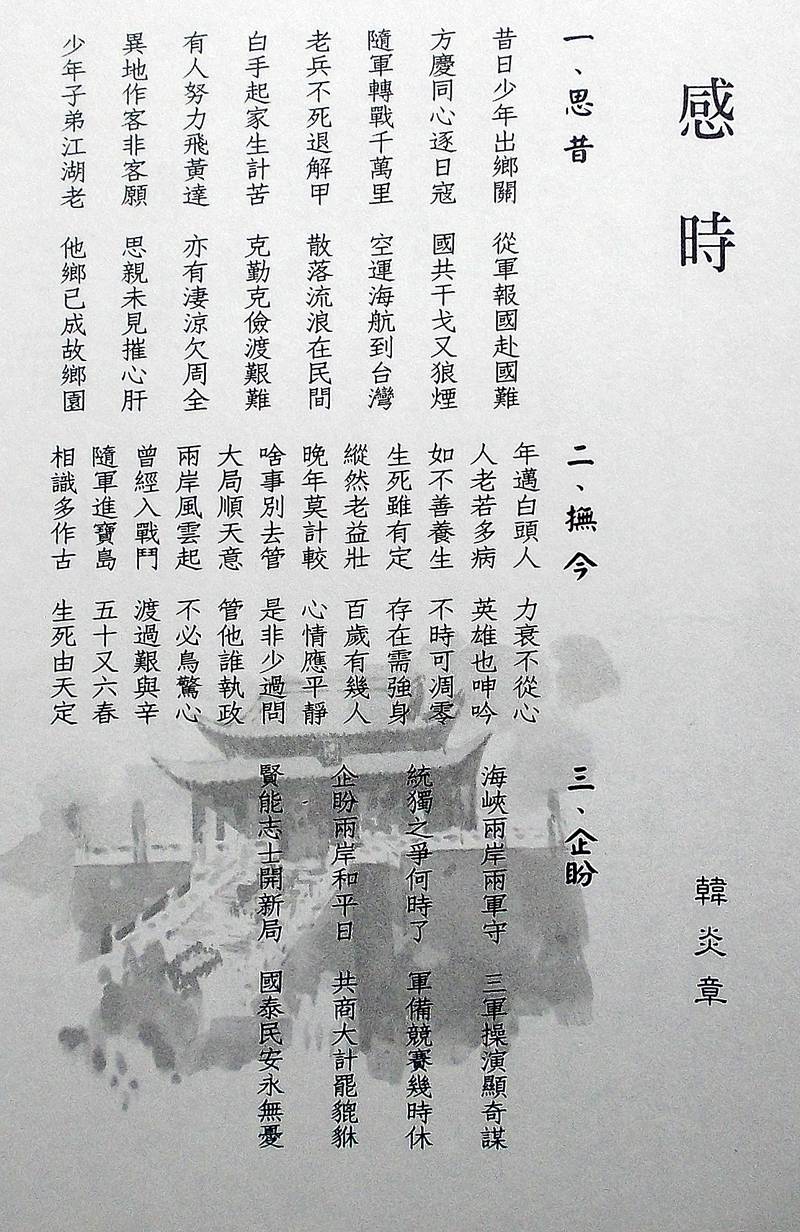 感時
韓炎章
一、思昔
昔日少年出鄉關 從軍報國赴國難
方慶同心逐日寇 國共干戈又狼煙
隨軍轉戰千萬里 空運海航到台灣
老兵不死退解甲 散落流浪在民間
白手起家生計苦 克勤克儉渡艱難
有人努力飛黃達 亦有淒涼欠周全
異地作客非客願 思親未見摧心肝
少年子弟江湖老 他鄉已成故鄉園
二、撫今
年邁白頭人 力衰不從心
人老若多病 英雄也呻吟
如不善養生 不時可凋零
生死雖有定 存在需強身
縱然老益壯 百歲有幾人
晚年莫計較 心情應平靜
啥事別去管 是非少過問
大局順天意 管他誰執政
兩岸風雲起 不必鳥驚心
曾經入戰鬥 渡過艱與辛
隨軍進寶島 五十又六春
相識多作古 生死由天定
三、企盼
海峽兩岸兩軍守 三軍操演顯奇謀
統獨之爭何時了 軍備競賽幾時休
企盼兩岸和平日 共商大計罷貔貅
賢能志士開新局 國泰民安永無憂